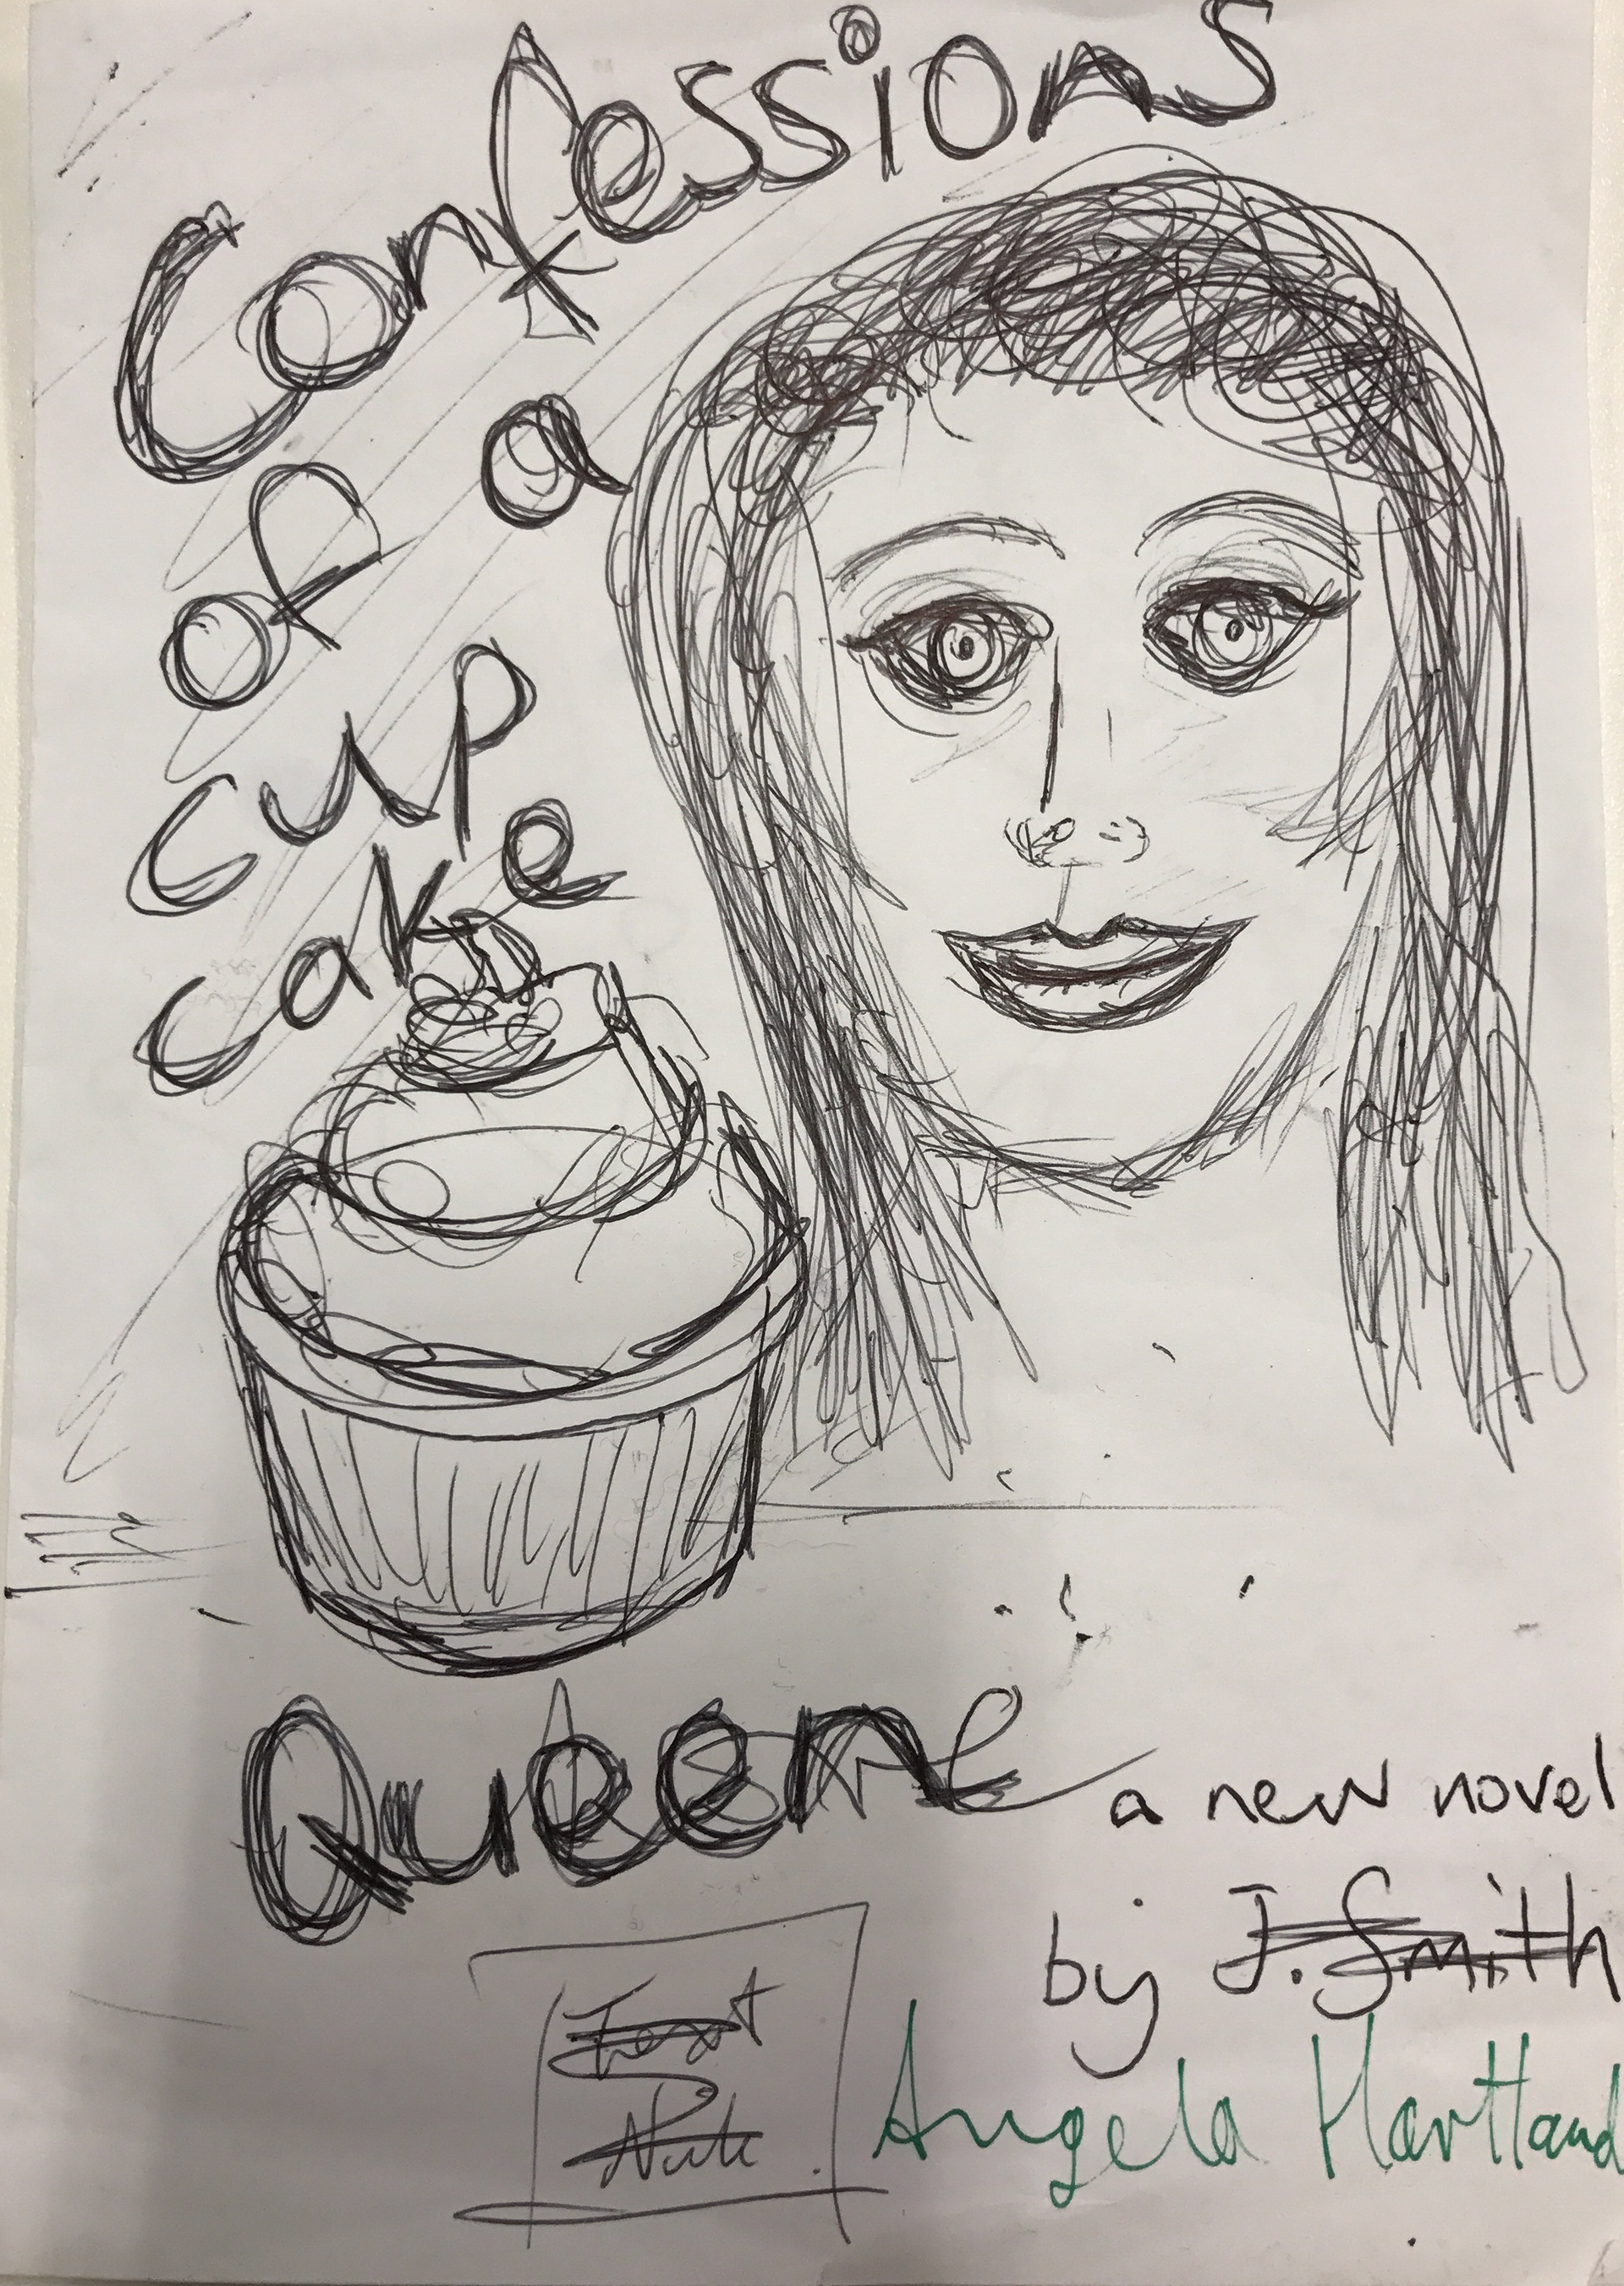 Confessions
of a
cup
cake
Queen
a new novel
by J. Smith
Angela Hartland